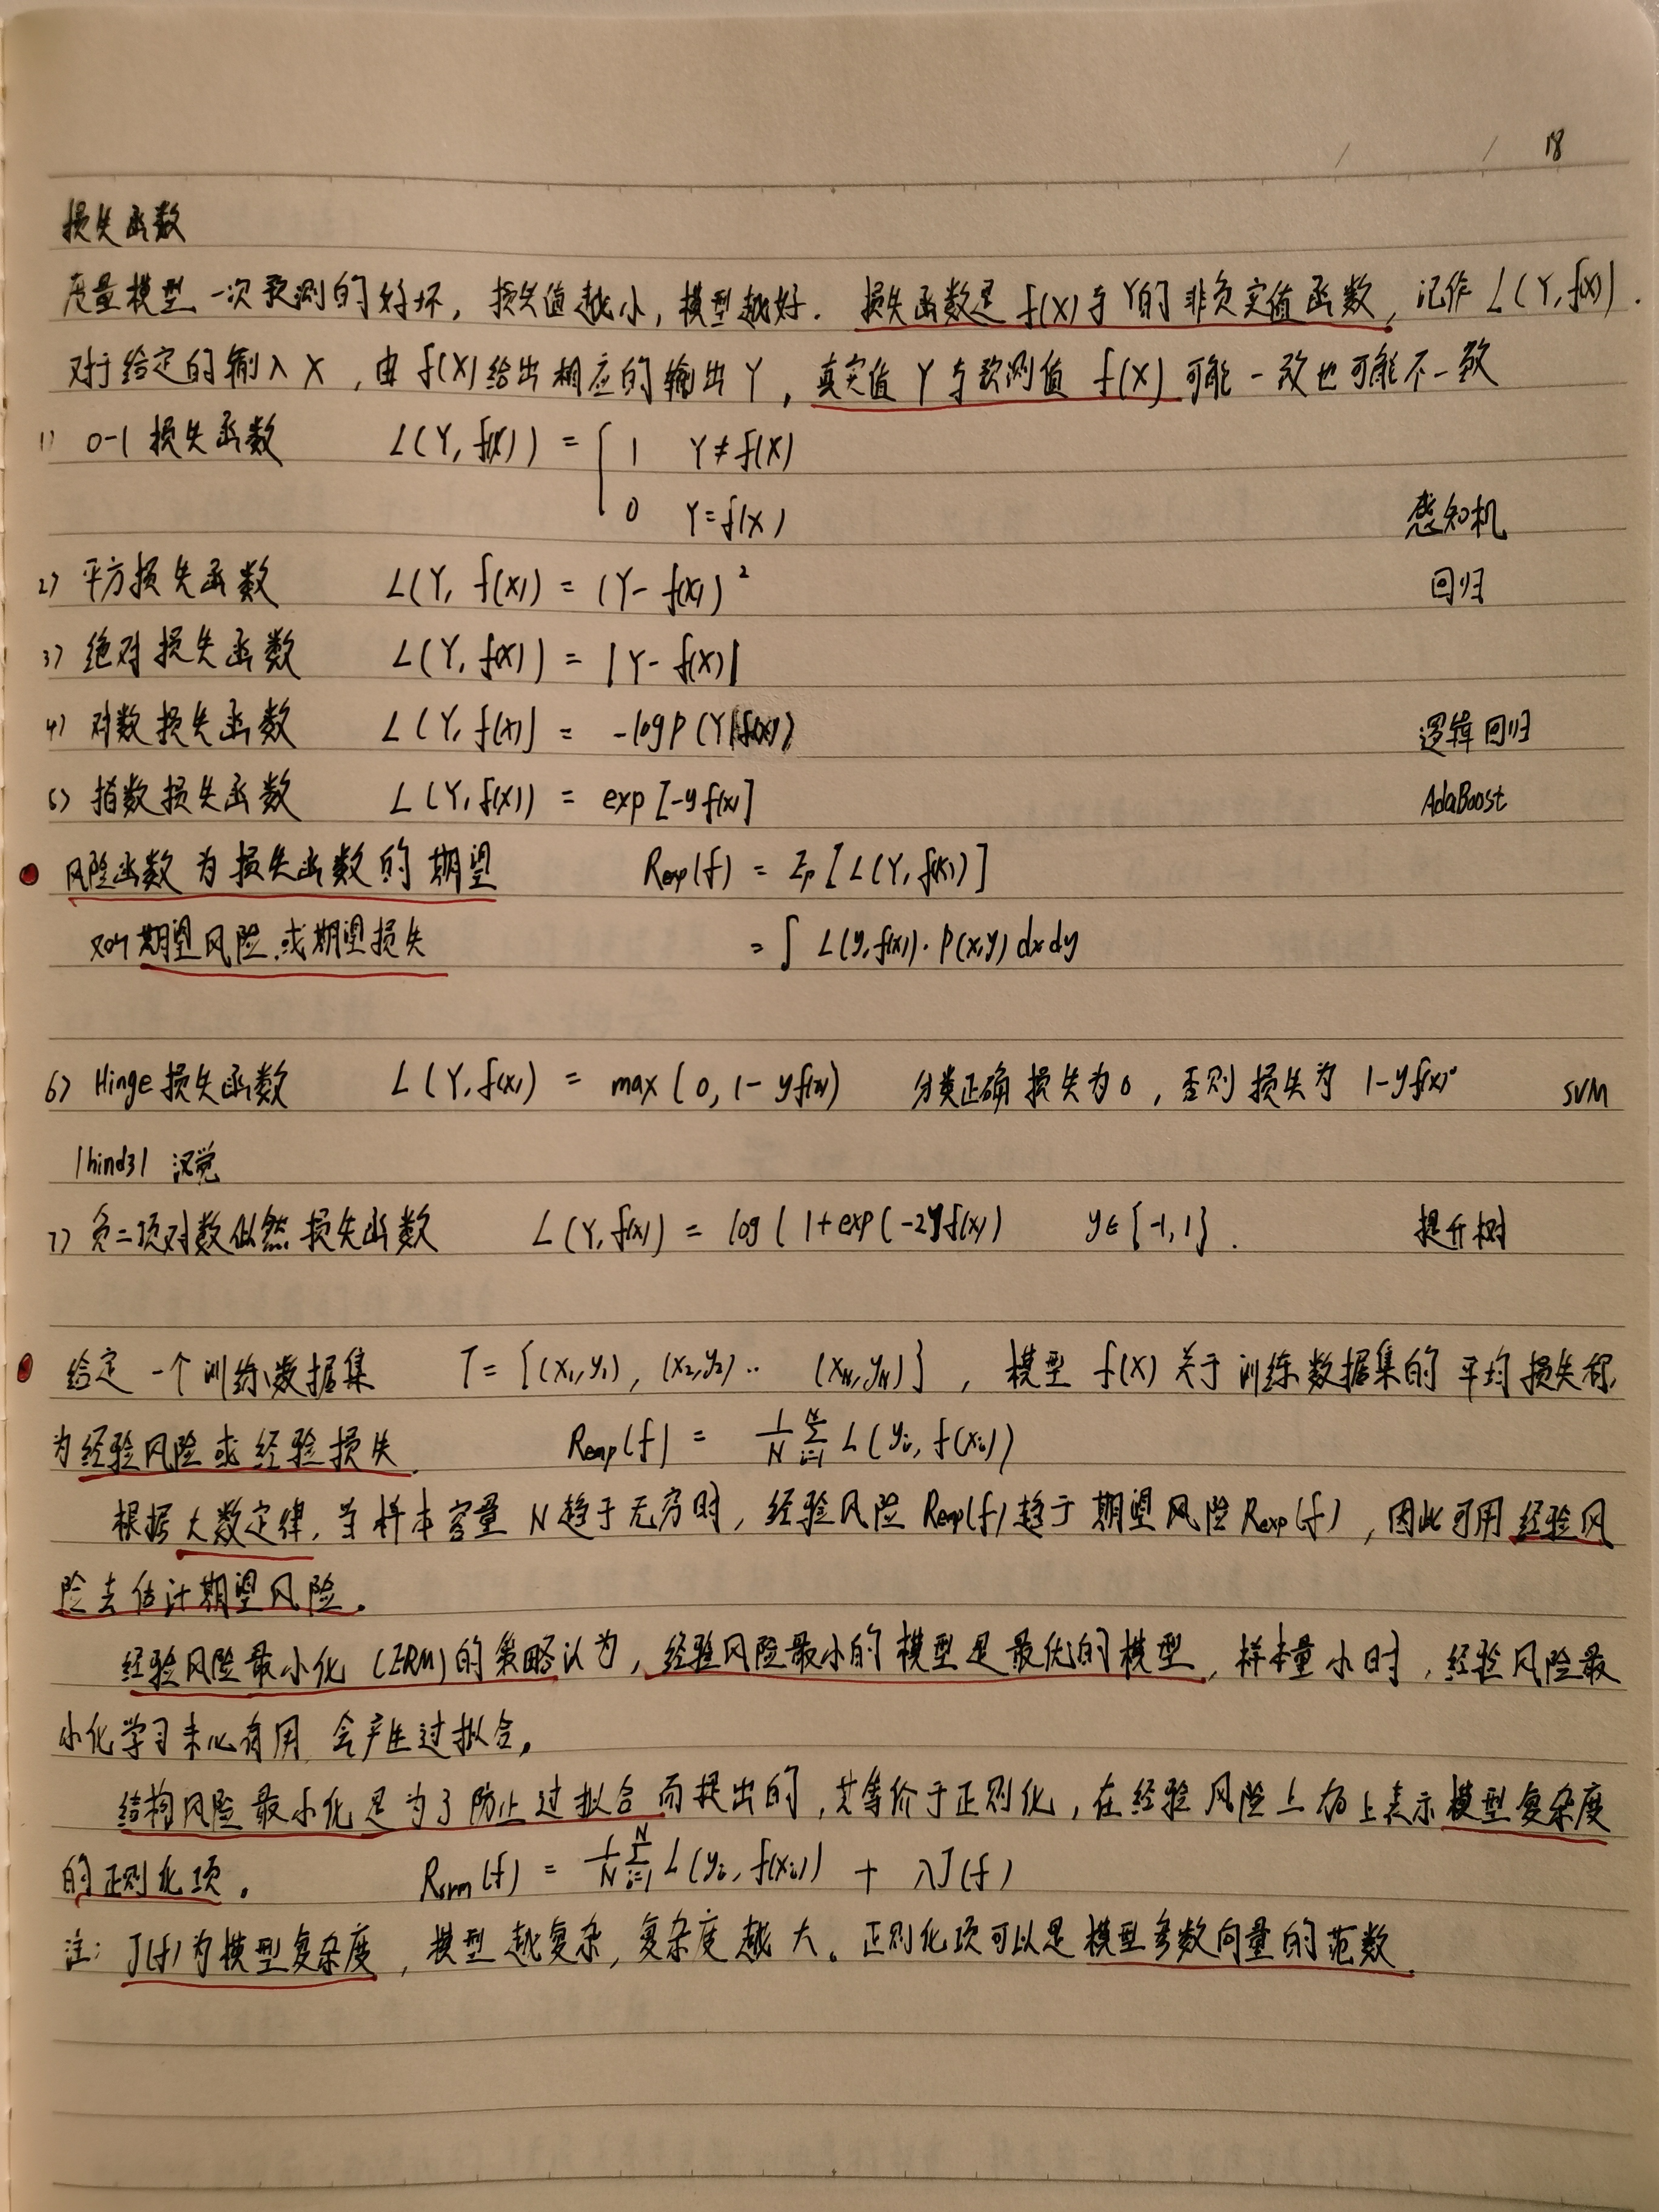 18
损失函数
度量模型一次预测的好坏，损失值越小，模型越好. 损失函数是 f(X)与Y的非负实值函数，记作 L(Y,f(X)).
对于给定的输入X，由f(X)给出相应的输出Y，真实值Y与预测值 f(X)可能一致也可能不一致
1) 0-1损失函数 L(Y, f(X)) = { 1 Y≠f(X)
0 Y=f(X) 感知机
2) 平方损失函数 L(Y, f(X)) = (Y-f(X))² 回归
3) 绝对损失函数 L(Y, f(X)) = |Y-f(X)|
4) 对数损失函数 L(Y, f(X)) = -logP(Y|f(X)) 逻辑回归
5) 指数损失函数 L(Y,f(X)) = exp[-yf(x)] AdaBoost
风险函数为损失函数的期望 Rexp(f) = Ep[L(Y,f(X))]
又叫期望风险或期望损失 = ∫ L(y,f(x))·P(x,y)dxdy
6) Hinge损失函数 L(Y,f(x)) = max(0, 1-yf(x)) 分类正确损失为0，否则损失为 1-yf(x). SVM
|hind3|
7) 负二项对数似然损失函数 L(Y,f(x)) = log(1+exp(-2yf(x)) y∈{-1,1}. 提升树
给定一个训练数据集 T={(x₁,y₁), (x₂,y₂).. (x_N,y_N)}，模型 f(X)关于训练数据集的平均损失称
为经验风险或经验损失. Remp(f) = 1/N ∑_{i=1}^{N} L(yi, f(xi))
根据大数定律，当样本容量 N趋于无穷时，经验风险Remp(f)趋于期望风险Rexp(f)，因此可用经验风
险去估计期望风险。
经验风险最小化(ERM)的策略认为，经验风险最小的模型是最优的模型，样本量小时，经验风险最
小化学习未必有用 会产生过拟合。
结构风险最小化是为了防止过拟合而提出的，其等价于正则化，在经验风险上加上表示模型复杂度
的正则化项。 Rsrm(f) = 1/N ∑_{i=1}^{N} L(yi, f(xi)) + λJ(f)
注: J(f)为模型复杂度，模型越复杂，复杂度越大。正则化项可以是模型参数向量的范数.